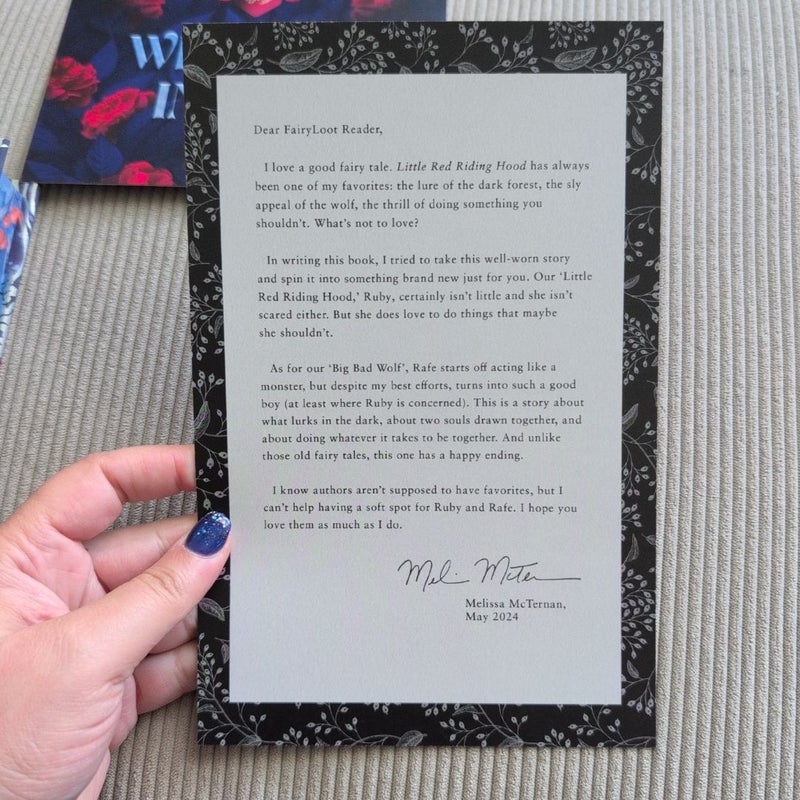 Dear FairyLoot Reader,
I love a good fairy tale. Little Red Riding Hood has always
been one of my favorites: the lure of the dark forest, the sly
appeal of the wolf, the thrill of doing something you
shouldn't. What's not to love?
In writing this book, I tried to take this well-worn story
and spin it into something brand new just for you. Our ‘Little
Red Riding Hood,’ Ruby, certainly isn't little and she isn't
scared either. But she does love to do things that maybe
she shouldn't.
As for our ‘Big Bad Wolf’, Rafe starts off acting like a
monster, but despite my best efforts, turns into such a good
boy (at least where Ruby is concerned). This is a story about
what lurks in the dark, about two souls drawn together, and
about doing whatever it takes to be together. And unlike
those old fairy tales, this one has a happy ending.
I know authors aren't supposed to have favorites, but I
can't help having a soft spot for Ruby and Rafe. I hope you
love them as much as I do.
Melissa McTernan,
May 2024